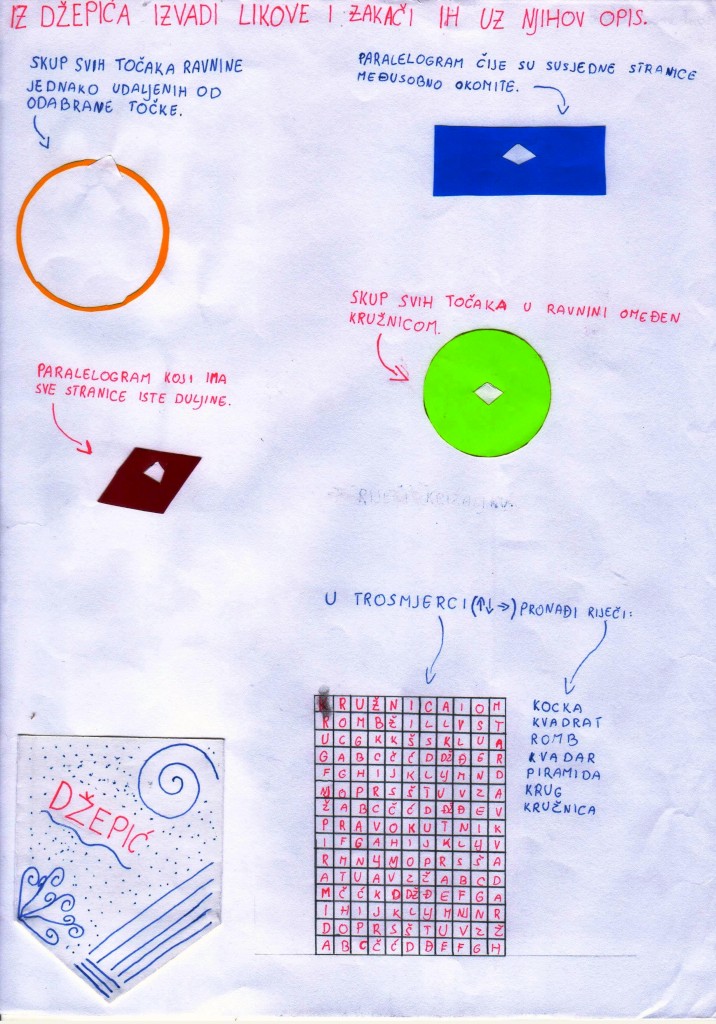 IZ DŽEPIĆA IZVADI LIKOVE I ZAKAČI IH UZ NJIHOV OPIS.
SKUP SVIH TOČAKA RAVNINE
JEDNAKO UDALJENIH OD
ODABRANE TOČKE.
PARALELOGRAM ČIJE SU SUSJEDNE STRANICE
MEĐUSOBNO OKOMITE.
SKUP SVIH TOČAKA U RAVNINI OMEĐEN
KRUŽNICOM.
PARALELOGRAM KOJI IMA
SVE STRANICE ISTE DULJINE.
U TROSMJERCI (↑↓→) PRONAĐI RIJEČI:
KRUŽNICAIOM
ROMBŽILLVST
UCGKKŠSKLUA
GABCČĆDDŽĐER
FGHIJKLLJMND
NJOPRSŠTUVZA
ŽABCČĆDDŽĐEV
PRAVOKUTNIK
IFGAHIJKLLJV
RMNNJMOPRSŠA
ATUAVZŽABCD
MČĆKDDŽĐEFGA
IHIJKLLJMNNJR
DOPRSŠTUVZŽ
ABCČĆDĐEFGH
KOCKA
KVADRAT
ROMB
KVADAR
PIRAMIDA
KRUG
KRUŽNICA
DŽEPIĆ